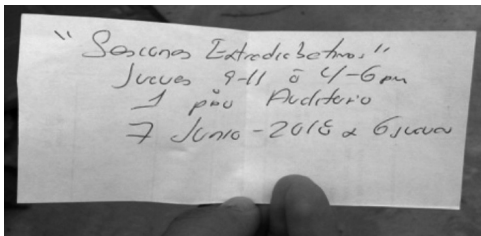 "Sesiones Extradiabetinos"
Jueves 9-11 ó 4-6pm
1 piso Auditorio
7 Junio - 2018 a 6 jueves